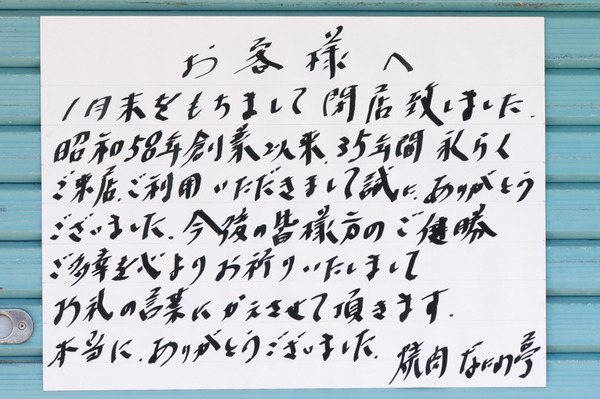 お客様へ
1月末をもちまして閉店致しました.
昭和58年創業以来.35年間 永らく
ご来店.ご利用いただきまして誠に.ありがとう
ございました.今後の皆様方のご健勝
ご多幸を心よりお祈りいたしまして
お礼の言葉にかえさせて頂きます.
本当に.ありがとうございました.
焼肉 なにわ亭